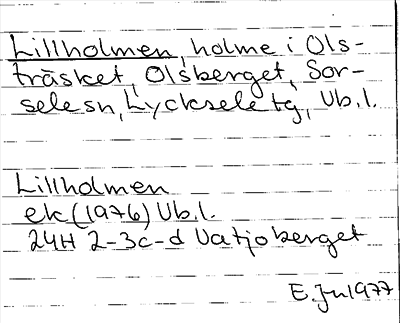 Lillholmen, holme i Ols-
träsket, Olsberget, Sor-
sele sn, Lycksele tg, Vb.l.
Lillholmen
ek (1976) Vb.l.
24H 2-3c-d Vatjoberget
E. Ju 1977